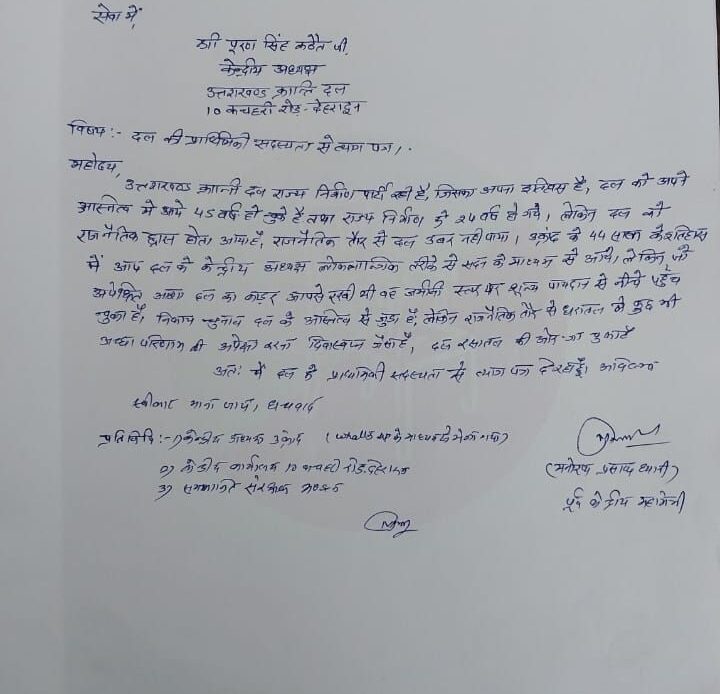 सेवा में,
श्री पूरण सिंह कठैत जी,
केन्द्रीय अध्यक्ष
उत्तराखण्ड क्रान्ति दल
10 कचहरी रोड़ - देहरादून
विषय :- दल की प्राथमिकी सदस्यता से त्याग पत्र।
महोदय,
उत्तराखण्ड क्रान्ती दल राज्य निर्माण पार्टी रही है, जिसका अपना इतिहास है, दल को अपने
अस्तित्व में आये 45 वर्ष हो चुके है तथा राज्य निर्माण को 24 वर्ष हो गये, लेकिन दल की
राजनैतिक ह्रास होता आया है, राजनैतिक तौर से दल उबर नही पाया। उक्रांद के 44 साल के इतिहास
में आप दल के केन्द्रीय अध्यक्ष लोकतान्त्रिक तरीके से सदन के माध्यम से आये, लेकिन जो
अपेक्षित आशा दल का कैडर आपसे रखी थी वह जमीनी स्तर पर शून्य पायदान से नीचे पहुँच
चुका है, निकाय चुनाव दल के अस्तित्व से जुड़ा है, लेकिन राजनैतिक तौर से धरातल में कुछ भी
अच्छा परिणाम की अपेक्षा करना दिवास्वप्न जैसा है, दल रसातल की ओर जा चुका है
अतः मैं दल के प्राथमिकी सदस्यता से त्याग पत्र दे रहा हूँ। अविलम्ब
स्वीकार माना जाय, धन्यवाद
प्रतिलिपि :- 1) केन्द्रीय अध्यक्ष उक्रांद (whatsapp के माध्यम से भेजा गया)
2) केंद्रीय कार्यालय 10 कचहरी रोड़ देहरादून
3) सम्मानित संरक्षक मण्डल
(मनोरथ प्रसाद ध्यानी)
पूर्व केन्द्रीय महामंत्री